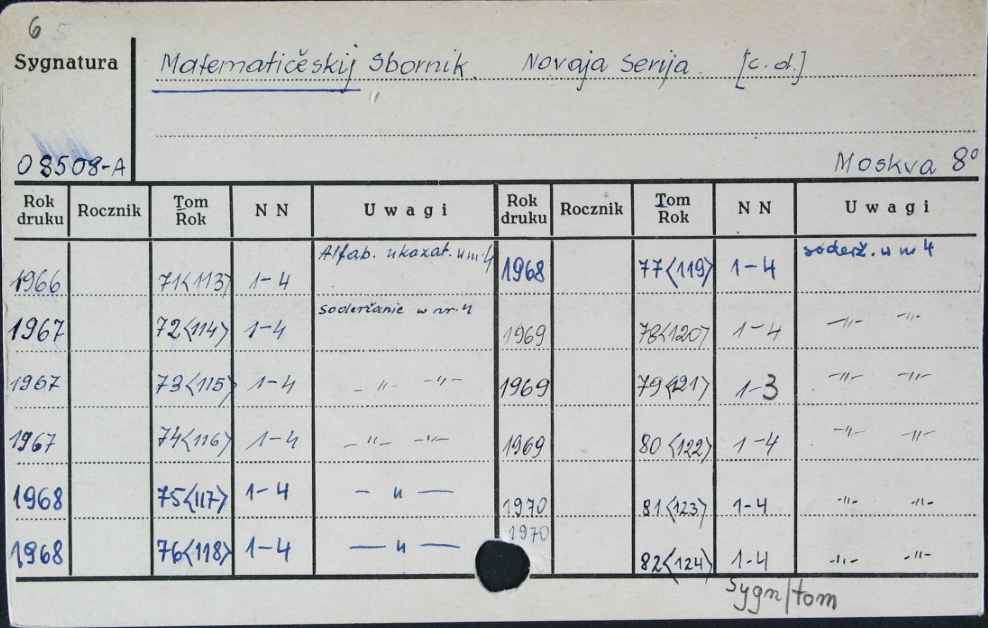 6 5
Sygnatura
Matematičeskij Sbornik. Novaja Serija. [c.d.]
08508-A
Moskva 8°
Rok druku Rocznik Tom Rok NN Uwagi Rok druku Rocznik Tom Rok NN Uwagi
1966 71<113> 1-4 Alfab. ukazat. w nr 4 1968 77<119> 1-4 soderž. w nr 4
1967 72<114> 1-4 soderžanie w nr 4 1969 78<120> 1-4 -"- -"-
1967 73<115> 1-4 -"- -"- 1969 79<121> 1-3 -"- -"-
1967 74<116> 1-4 -"- -"- 1969 80<122> 1-4 -"- -"-
1968 75<117> 1-4 -"- 1970 81<123> 1-4 -"- -"-
1968 76<118> 1-4 -"- 1970 82<124> 1-4 -"- -"-
Sygn/tom